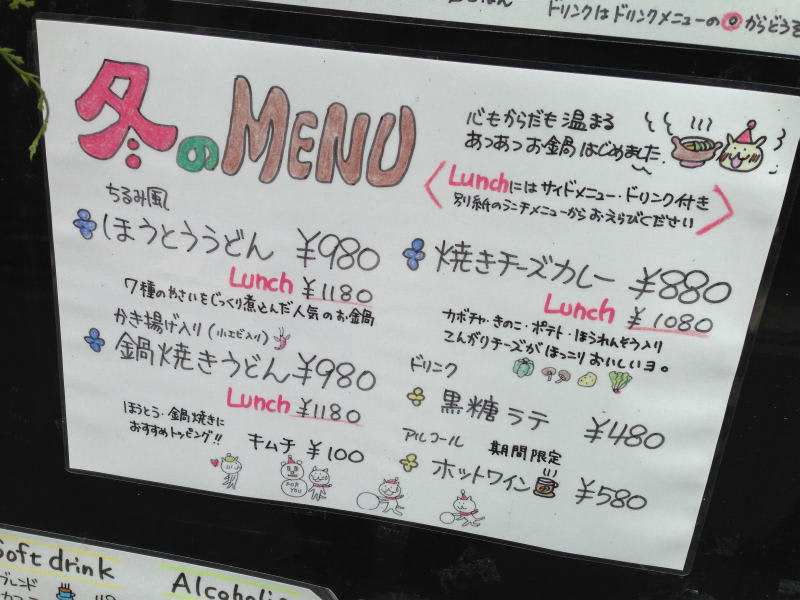 ドリンクはドリンクメニューの◎からどうぞ
冬のMENU
心もからだも温まる
あつあつお鍋はじめました
Lunchにはサイドメニュー・ドリンク付き
別紙のランチメニューからおえらびください
ちるみ風
ほうとううどん ¥980
Lunch ¥1180
7種のやさいをじっくり煮込んだ人気のお鍋
かき揚げ入り(小エビ入り)
鍋焼きうどん ¥980
Lunch ¥1180
ほうとう・鍋焼きに
おすすめトッピング!!
キムチ ¥100
FOR YOU
焼きチーズカレー ¥880
Lunch ¥1080
カボチャ・きのこ・ポテト・ほうれんそう入り
こんがりチーズがほっこりおいしいヨ。
ドリンク
黒糖ラテ ¥480
アルコール 期間限定
ホットワイン ¥580
Soft drink
ブレンド
Alcoholic